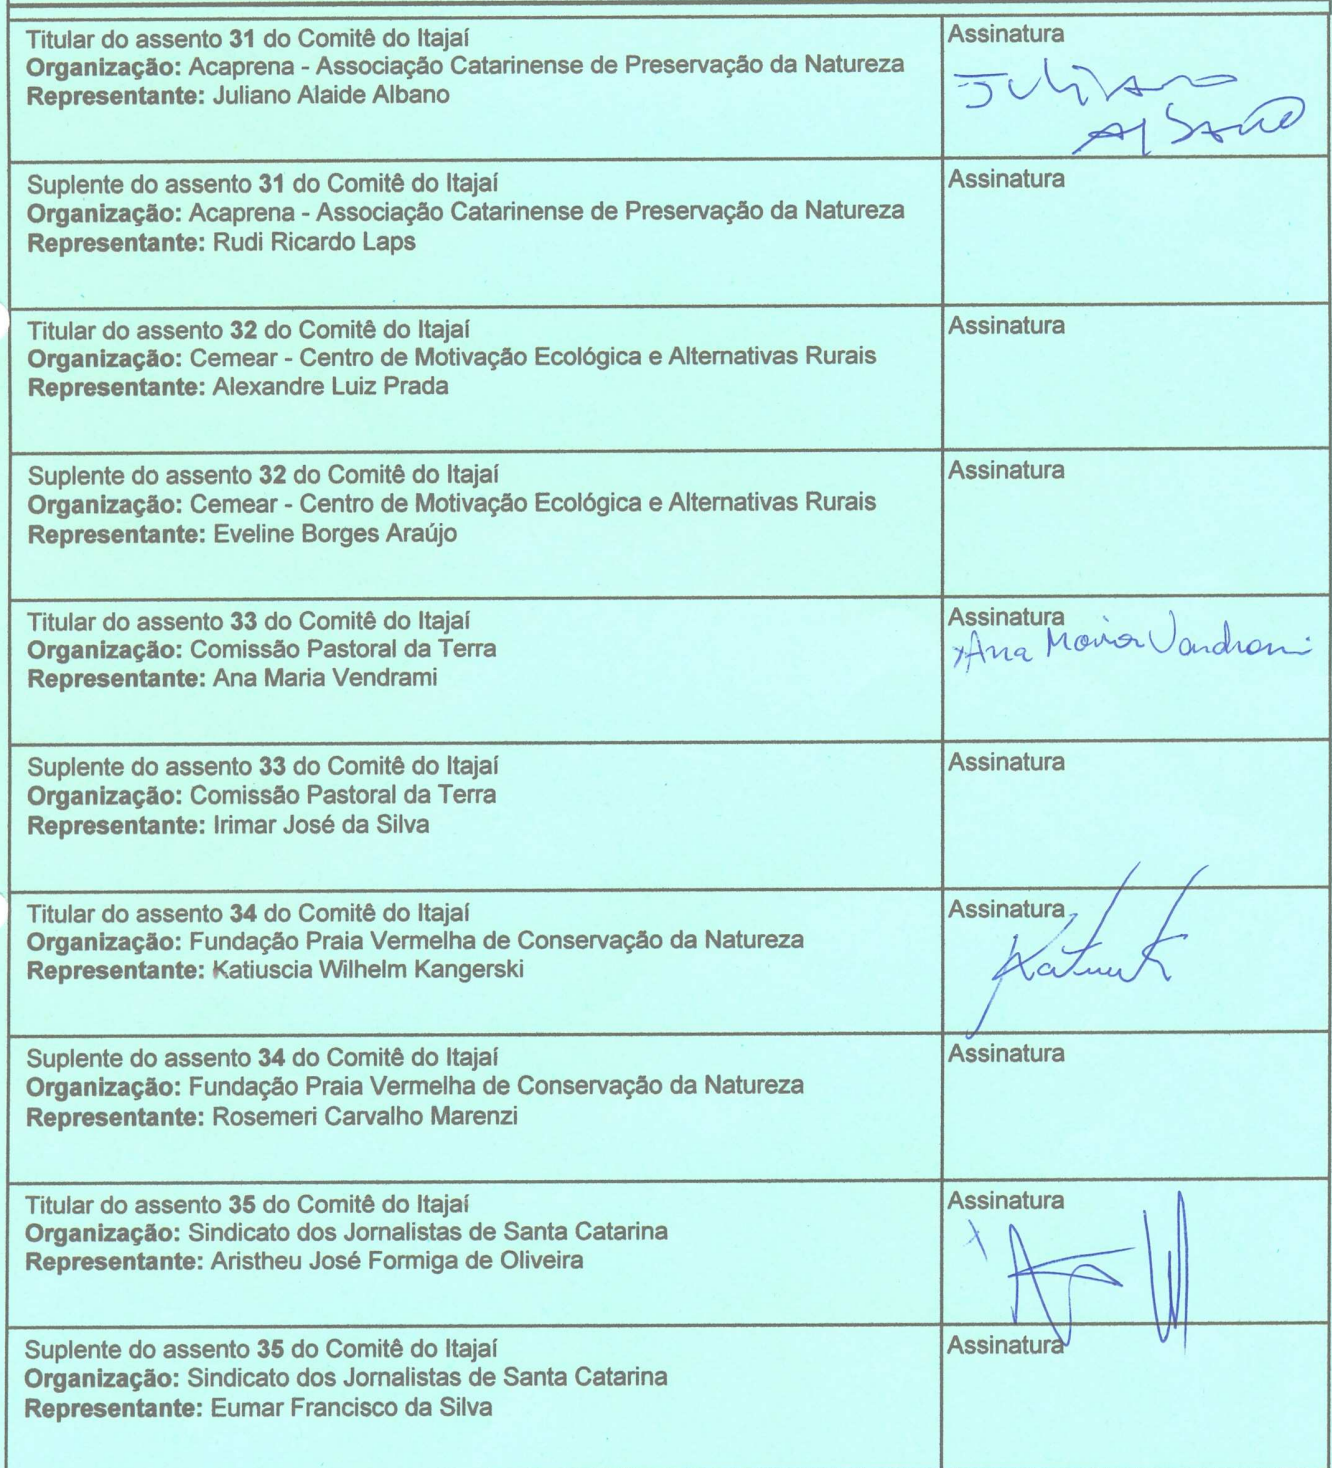 Titular do assento 31 do Comitê do Itajaí
Organização: Acaprena - Associação Catarinense de Preservação da Natureza
Representante: Juliano Alaide Albano
Assinatura
Juliano
Albano
Suplente do assento 31 do Comitê do Itajaí
Organização: Acaprena - Associação Catarinense de Preservação da Natureza
Representante: Rudi Ricardo Laps
Assinatura
Titular do assento 32 do Comitê do Itajaí
Organização: Cemear - Centro de Motivação Ecológica e Alternativas Rurais
Representante: Alexandre Luiz Prada
Assinatura
Suplente do assento 32 do Comitê do Itajaí
Organização: Cemear - Centro de Motivação Ecológica e Alternativas Rurais
Representante: Eveline Borges Araújo
Assinatura
Titular do assento 33 do Comitê do Itajaí
Organização: Comissão Pastoral da Terra
Representante: Ana Maria Vendrami
Assinatura
x Ana Maria Vendrami
Suplente do assento 33 do Comitê do Itajaí
Organização: Comissão Pastoral da Terra
Representante: Irimar José da Silva
Assinatura
Titular do assento 34 do Comitê do Itajaí
Organização: Fundação Praia Vermelha de Conservação da Natureza
Representante: Katiuscia Wilhelm Kangerski
Assinatura
Suplente do assento 34 do Comitê do Itajaí
Organização: Fundação Praia Vermelha de Conservação da Natureza
Representante: Rosemeri Carvalho Marenzi
Assinatura
Titular do assento 35 do Comitê do Itajaí
Organização: Sindicato dos Jornalistas de Santa Catarina
Representante: Aristheu José Formiga de Oliveira
Assinatura
x
Suplente do assento 35 do Comitê do Itajaí
Organização: Sindicato dos Jornalistas de Santa Catarina
Representante: Eumar Francisco da Silva
Assinatura